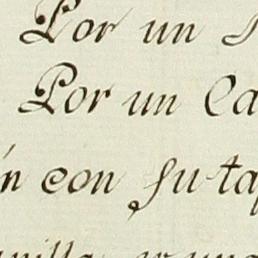 Por un
Por un Ca
n con su ta